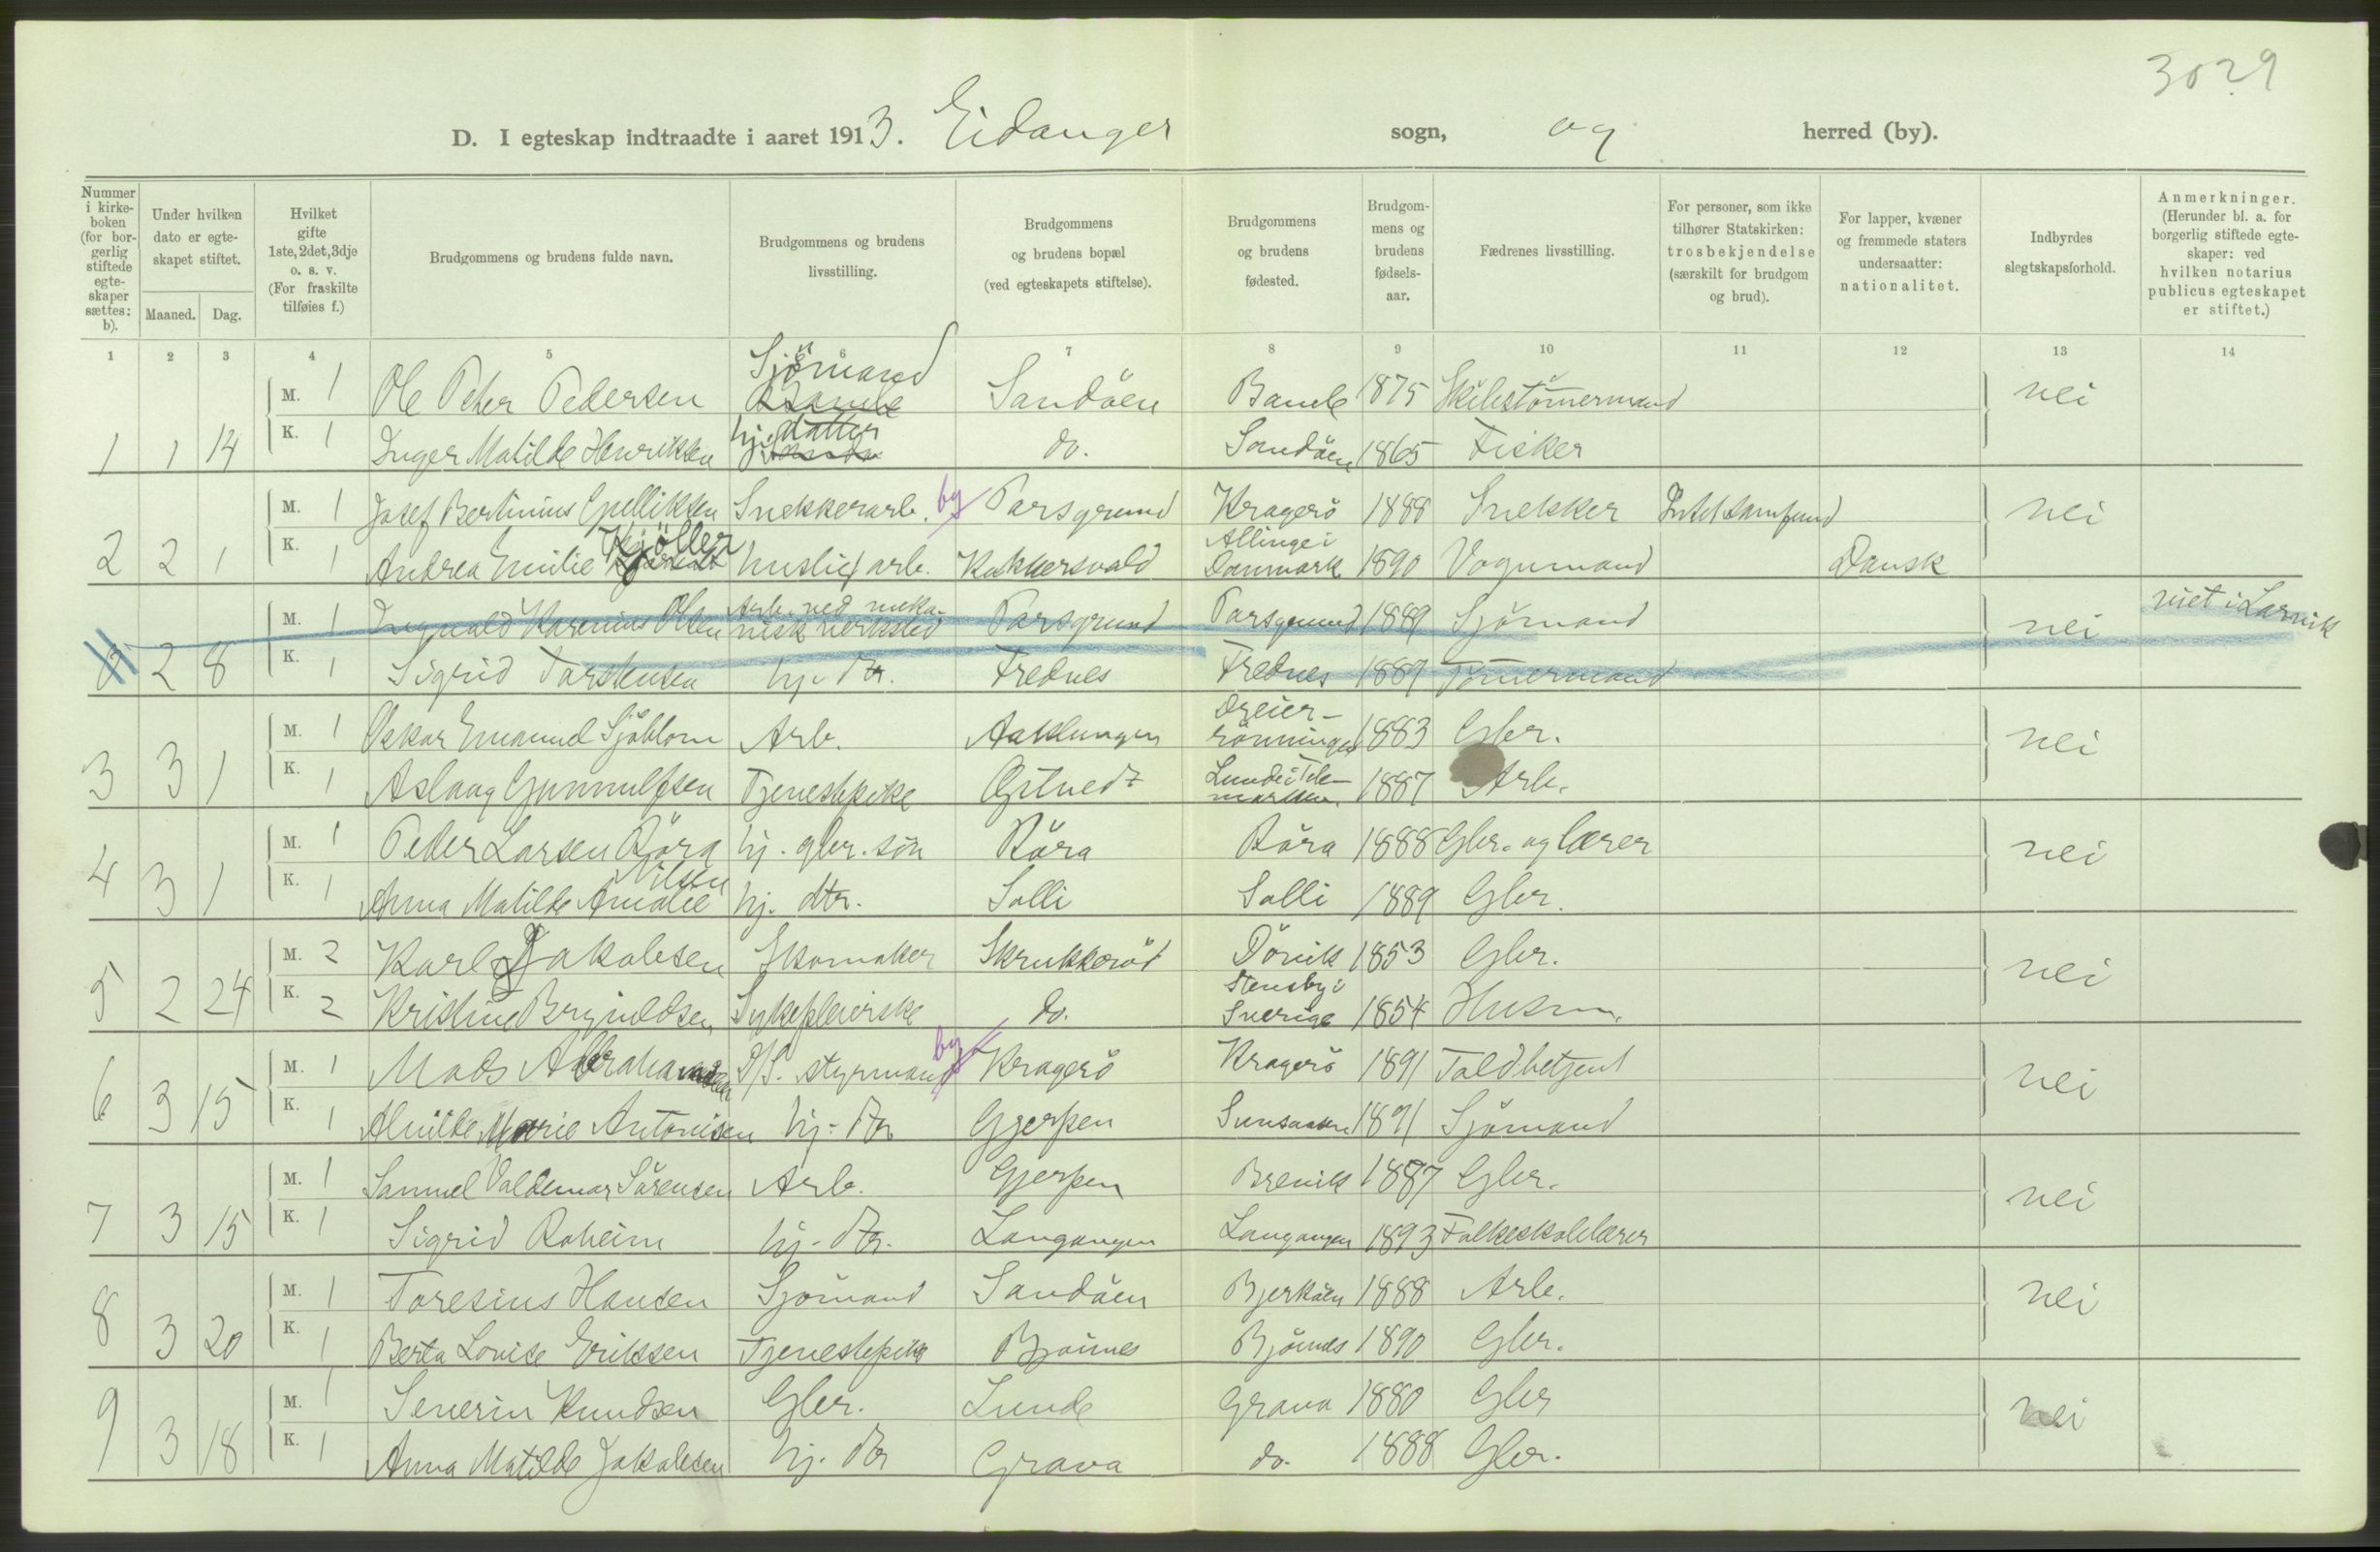 3029
D. I egteskap indtraadte i aaret 1913. Eidanger sogn, og herred (by).
Nummer i kirkeboken (for borgerlig stiftede egteskaper sættes: b).
Under hvilken dato er egteskapet stiftet.
Maaned. Dag.
Hvilket gifte 1ste, 2det, 3dje o. s. v. (For fraskilte tilføies f.)
Brudgommens og brudens fulde navn.
Brudgommens og brudens livsstilling.
Brudgommens og brudens bopæl (ved egteskapets stiftelse).
Brudgommens og brudens fødested.
Brudgommens og brudens fødselsaar.
Fædrenes livsstilling.
For personer, som ikke tilhører Statskirken: trosbekjendelse (særskilt for brudgom og brud).
For lapper, kvæner og fremmede staters undersaatter: nationalitet.
Indbyrdes slegtskapsforhold.
Anmerkninger. (Herunder bl. a. for borgerlig stiftede egteskaper: ved hvilken notarius publicus egteskapet er stiftet.)
1 2 3 4 5 6 7 8 9 10 11 12 13 14
M. 1 Ole Peter Pedersen Sjömand Bamble Sandöen Bamle 1875 Skibstömermand nei
1 1 14 K. 1 Inger Matilde Henriksen hj. datter do. Sandöen 1865 Fisker
M. 1 Josef Bertinius Gulliksen Snekkerarb. by Porsgrund Kragerö 1888 Snekker nei
2 2 1 K. 1 Andrea Emilie Kjöller huslig arb. Kokkersvold Allinge i Danmark 1890 Vognmand Dansk
M. 1 Karenius Olsen Arb. ved mekanisk verksted Porsgrund Porsgrund 1889 Sjömand nei viet i Larvik
2 8 K. 1 Sigrid Torstensen hj. dtr. Frednes Frednes 1889 Tömermand
M. 1 Oskar Emanuel Sjöblom Arb. Aaklungen 1883 Gbr. nei
3 3 1 K. 1 Aslaug Gunnulfsen Tjenestepike Östvedt Lunde i Telemarken 1887 Arb.
M. 1 Peder Larsen Röra hj. gbr. sön Röra Röra 1888 Gbr. og lærer nei
4 3 1 K. 1 Anna Matilde Amalie Nilsen hj. dtr. Solli Solli 1889 Gbr.
M. 2 Karl Jakobsen Skomaker Skrukkeröd Dövik 1853 Gbr. nei
5 2 24 K. 2 Kristine Brynildsen Sykepleierske do. Stensby i Sverige 1854 Husm.
M. 1 Mads Abrahamsen D/S. styrmand by Kragerö Kragerö 1891 Toldbetjent nei
6 3 15 K. 1 Alvilde Marie Antonisen hj. dtr Gjerpen 1891 Sjömand
M. 1 Samuel Valdemar Sörensen Arb. Gjerpen Brevik 1887 Gbr. nei
7 3 15 K. 1 Sigrid Roheim hj. dtr. Langangen Langangen 1893 Folkeskolelærer
M. 1 Toresius Hansen Sjömand Sandöen Bjerköen 1888 Arb. nei
8 3 20 K. 1 Berta Louise Eriksen Tjenestepike Björnnes Björnnes 1890 Gbr.
M. 1 Severin Knudsen Gbr. Lunde Grava 1880 Gbr nei
9 3 18 K. 1 Anna Matilde Jakobsen hj. dtr Grava do. 1888 Gbr.